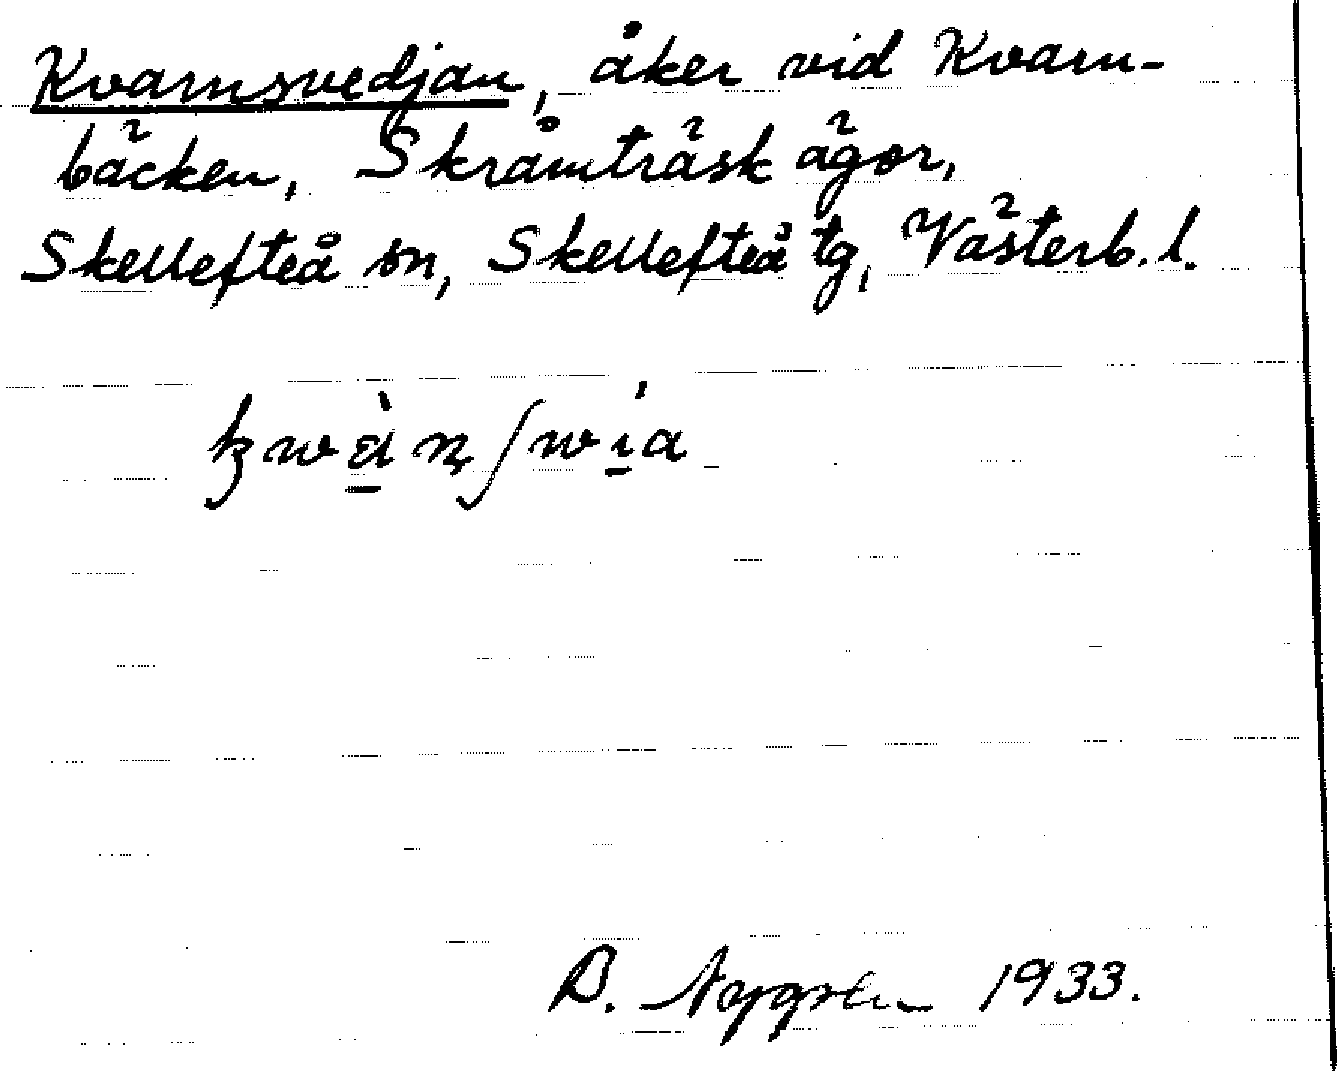 Kvarnsvedjan, åker vid Kvarn-
bäcken, Skråmträsk ägor,
Skellefteå sn, Skellefteå tg, Västerb. l.
D. Nygren 1933.